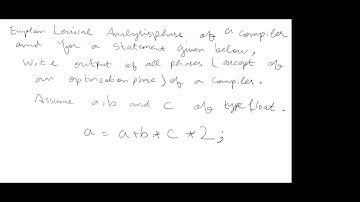 Explain Lexical Analysis phase of a compiler
and for a statement given below;
Write output of all phases (except of
an optimization phase) of a compiler.
Assume a,b and c of type float.
a = a+b * c * 2;